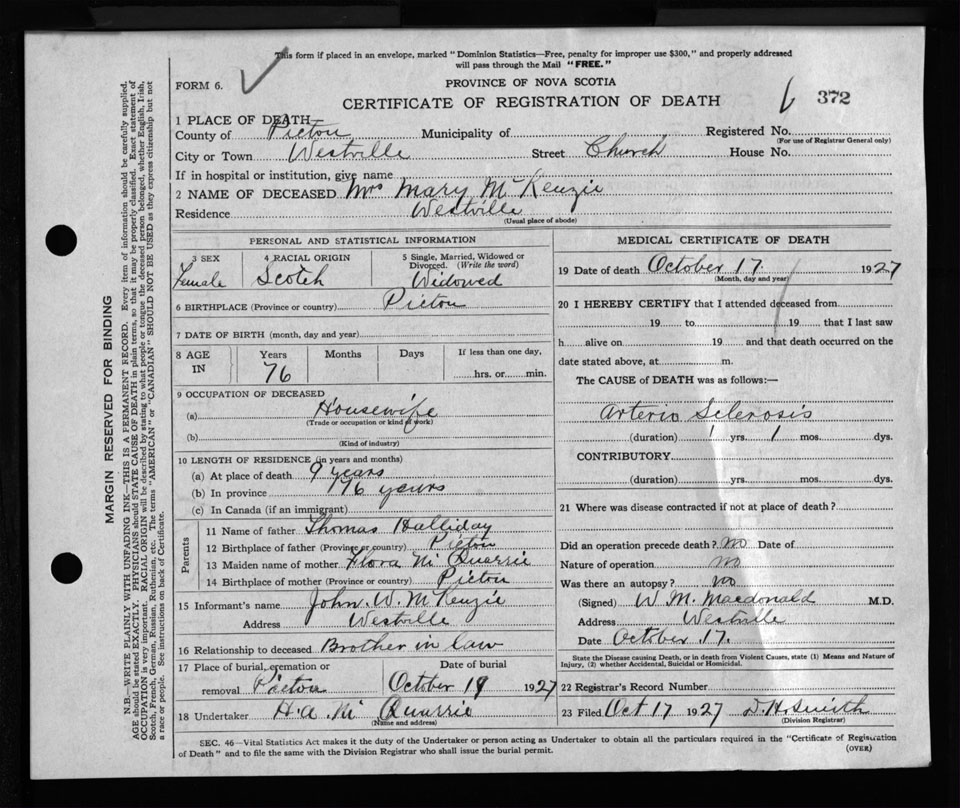 This form if placed in an envelope, marked "Dominion Statistics—Free, penalty for improper use $300," and properly addressed
will pass through the Mail "FREE."
FORM 6.
PROVINCE OF NOVA SCOTIA
CERTIFICATE OF REGISTRATION OF DEATH
372
1 PLACE OF DEATH
County of Pictou Municipality of Registered No.
(For use of Registrar General only)
City or Town Westville Street Church House No.
If in hospital or institution, give name
2 NAME OF DECEASED Mrs Mary McKenzie
Residence Westville
(Usual place of abode)
PERSONAL AND STATISTICAL INFORMATION
3 SEX 4 RACIAL ORIGIN 5 Single, Married, Widowed or
Divorced. (Write the word)
Female Scotch Widowed
6 BIRTHPLACE (Province or country) Pictou
7 DATE OF BIRTH (month, day and year)
8 AGE IN Years Months Days If less than one day,
76 hrs. or min.
9 OCCUPATION OF DECEASED
(a) Housewife
(Trade or occupation or kind of work)
(b)
(Kind of industry)
10 LENGTH OF RESIDENCE (in years and months)
(a) At place of death 9 years
(b) In province 76 years
(c) In Canada (if an immigrant)
Parents
11 Name of father Thomas Halliday
12 Birthplace of father (Province or country) Pictou
13 Maiden name of mother Flora McQuarrie
14 Birthplace of mother (Province or country) Pictou
15 Informant's name John. W. McKenzie
Address Westville
16 Relationship to deceased Brother in law
17 Place of burial, cremation or Date of burial
removal Pictou October 19 1927
18 Undertaker H. A. McQuarrie
(Name and address)
MEDICAL CERTIFICATE OF DEATH
19 Date of death October 17 1927
(Month, day and year)
20 I HEREBY CERTIFY that I attended deceased from
19 to 19 that I last saw
h alive on 19 and that death occurred on the
date stated above, at m.
The CAUSE of DEATH was as follows:—
Arterio Sclerosis
(duration) 1 yrs. 1 mos. dys.
CONTRIBUTORY
(duration) yrs. mos. dys.
21 Where was disease contracted if not at place of death?
Did an operation precede death? no Date of
Nature of operation no
Was there an autopsy? no
(Signed) W. M. Macdonald M.D.
Address Westville
Date October 17.
State the Disease causing Death, or in death from Violent Causes, state (1) Means and Nature of
Injury, (2) whether Accidental, Suicidal or Homicidal.
22 Registrar's Record Number
23 Filed Oct 17 1927 D. H. Smith
(Division Registrar)
SEC. 46—Vital Statistics Act makes it the duty of the Undertaker or person acting as Undertaker to obtain all the particulars required in the "Certificate of Registration
of Death" and to file the same with the Division Registrar who shall issue the burial permit. (OVER)
MARGIN RESERVED FOR BINDING
N.B.—WRITE PLAINLY WITH UNFADING INK—THIS IS A PERMANENT RECORD. Every item of information should be carefully supplied.
AGE should be stated EXACTLY. PHYSICIANS should STATE CAUSE OF DEATH in plain terms, so that it may be properly classified. Exact statement of
OCCUPATION is very important. RACIAL ORIGIN will be described by stating to what people or tongue the deceased person belonged, whether English, Irish,
Scotch, French, German, Russian, Ruthenian, etc. The terms "AMERICAN" or "CANADIAN" SHOULD NOT BE USED as they express citizenship but not
a race or people. See instructions on back of Certificate.